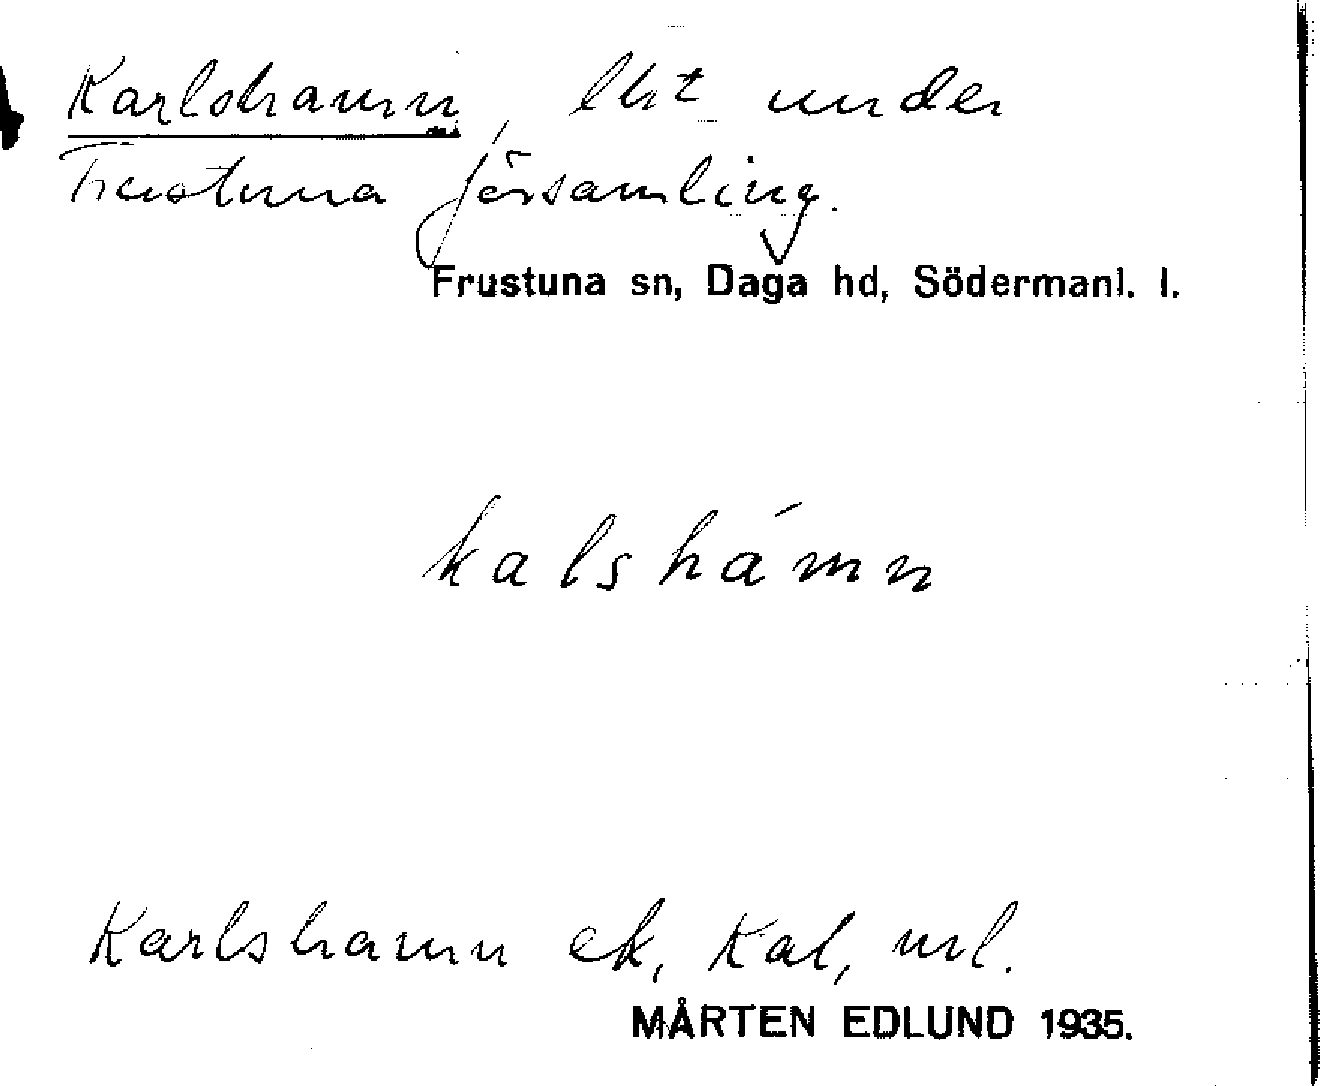 Karlshamn, lht under
Frustuna församling.
Frustuna sn, Daga hd, Södermanl. l.
kalshámn
Karlshamn ek, Kal, url.
MÅRTEN EDLUND 1935.